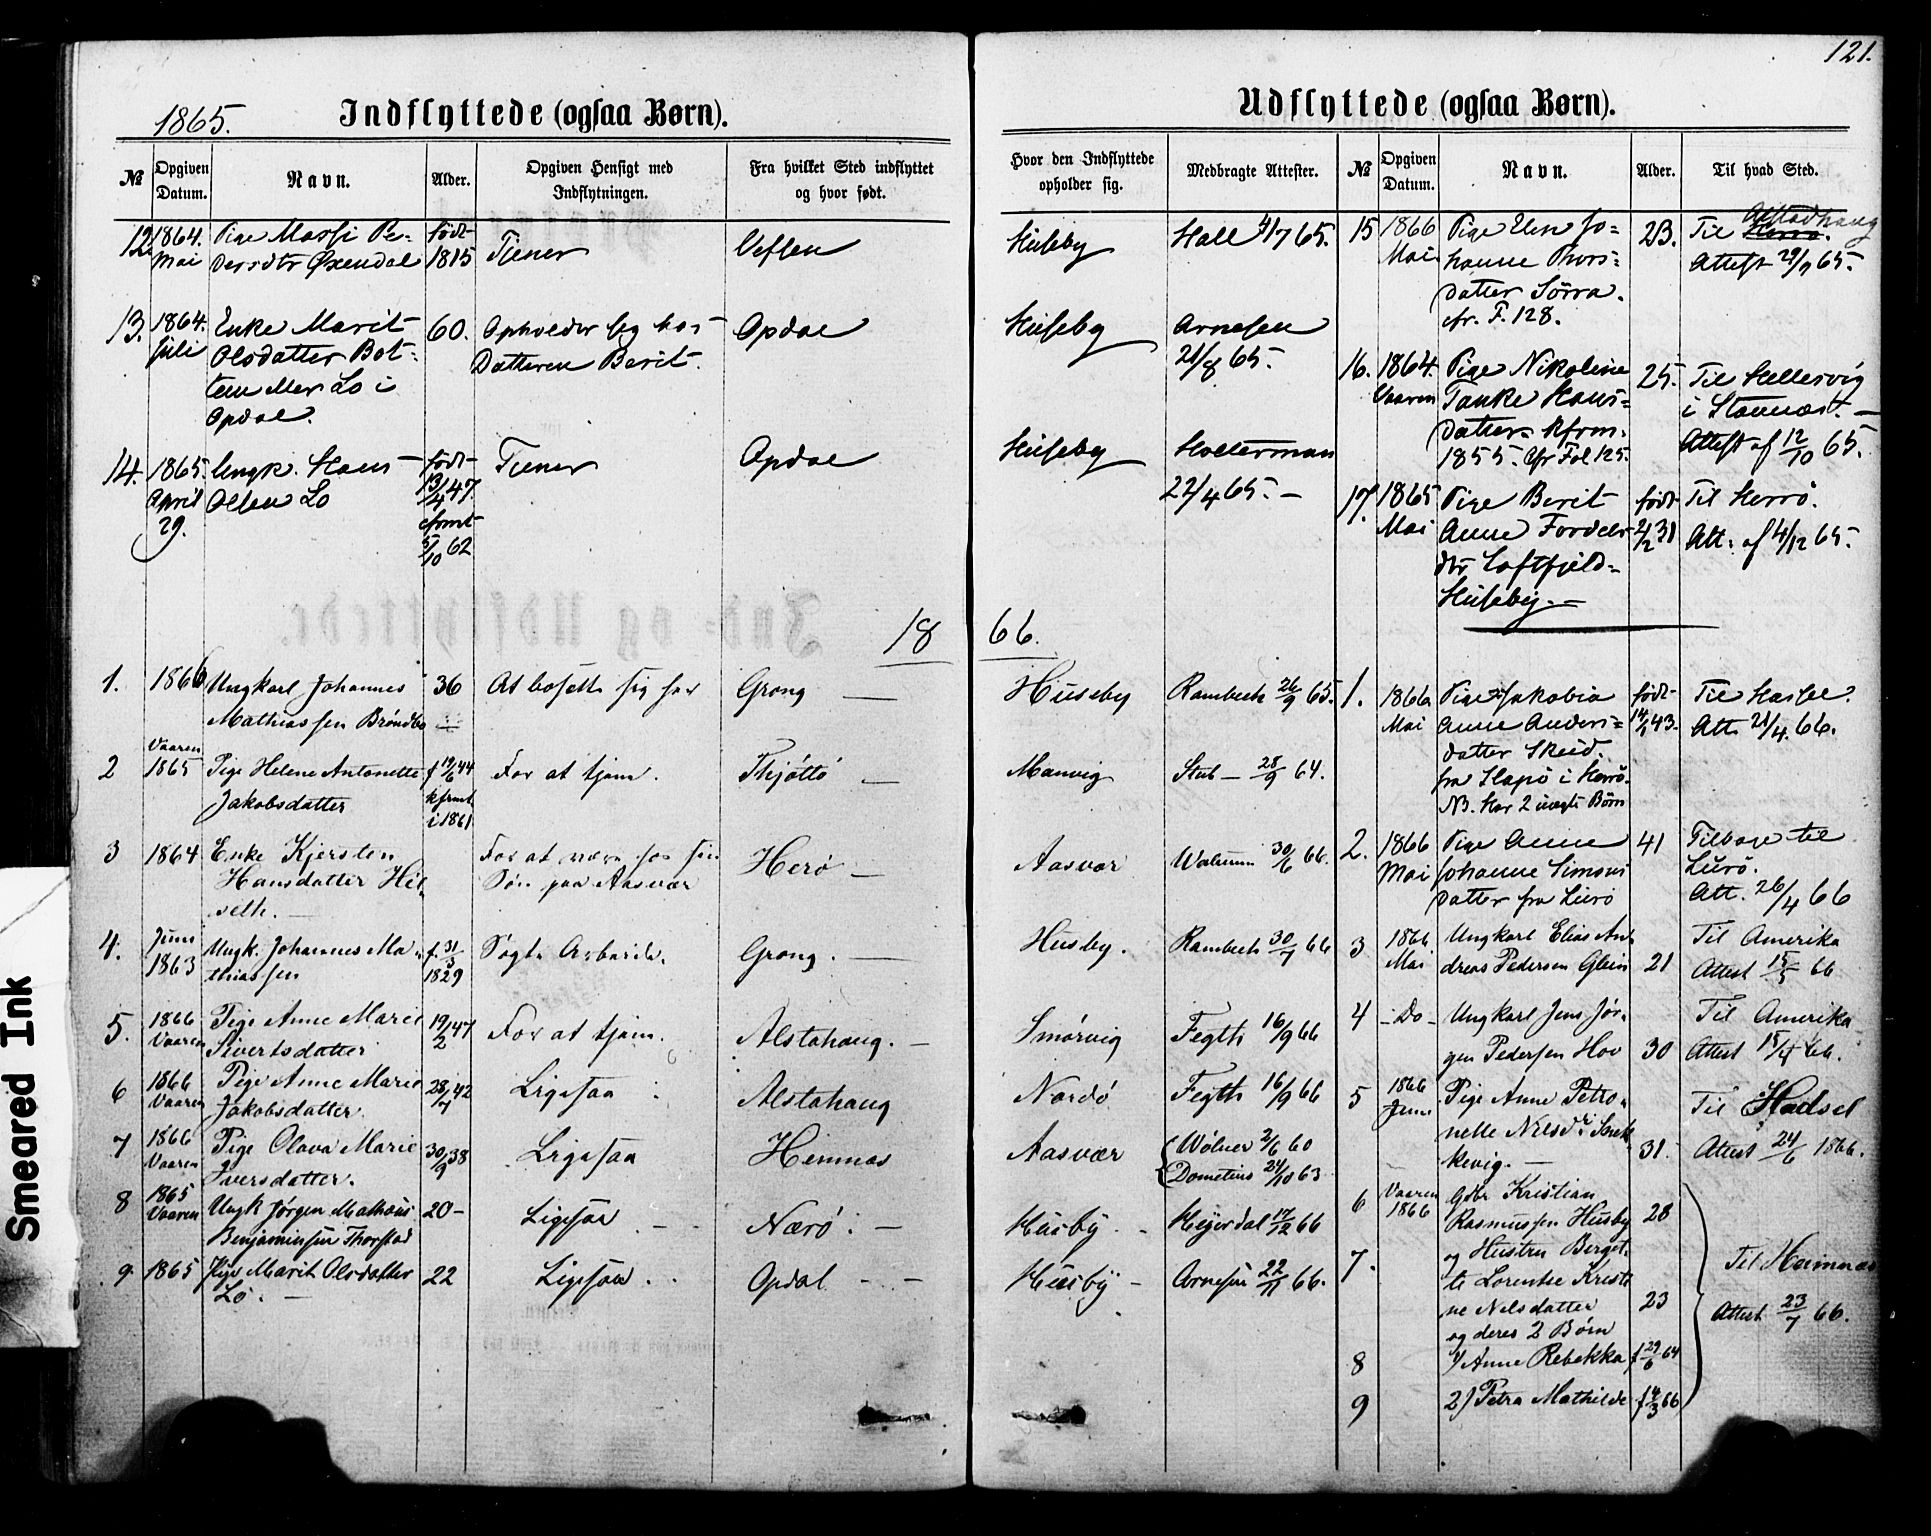 121.
1865.
Indflyttede (ogsaa Børn).
№
Opgiven Datum.
Navn.
Alder.
Opgiven Hensigt med Indflytningen.
Fra hvilket Sted indflyttet og hvor født.
Hvor den Indflyttede opholder sig.
Medbragte Attester.
12. 1864. Pige Massi Pe- født Tjener Vefsen Huseby Hall 4/7 65.
Mai dersdtr Øxendal 1815
13. 1864. Enke Marit 60. Opholder sig hos Opdal Huseby Arnesen
Juli Olsdatter Bot- Datteren Berit. 21/8 65.
tem Mer Lo i
Opdal.
14. 1865. Ungk. Hans født Tjener Opdal Huseby Holterman
April Olsen Lo 13/4 47. 22/4 65. —
29. cfrmt
5/10 62
1866.
1. 1866 Ungkarl Johannes 36 At bosette sig her Grong — Huseby Rambech 26/9 65.
Mathiassen Brøndbo —
2 Vaaren 1865 Pige Helene Antonette f 19/6 44 For at tjene. Thjøttø — Manvig Stub — 28/9 64.
Jakobsdatter kfrmt
i 1861
3 1864 Enke Kjersten For at være hos sin Herø — Aasvær 30/6 66.
Hansdatter Hil- Søn paa Aasvær
seth. —
4. Juni Ungk. Johannes Ma- f. 31/3 Søgte Arbeide. Grong. — Husby. Rambech 30/7 66
1863 thiassen 1829
5. 1866 Pige Anne Marie 19/2 47 For at tjene. Alstahaug. — Smørvig Fegth 16/9 66
Vaaren Sivertsdatter
6 1866 Pige Anne Marie 28/7 42 Ligesaa Alstahaug Nordø Fegth 16/9 66
Vaaren Jakobsdatter.
7 1866 Pige Olava Marie 30/9 38 Ligesaa Hemnæs Aasvær Wolner 2/6 60
Vaaren Iversdatter. Dometius 24/10 63
8 1865 Ungk Jørgen Mathæus 20 — Ligesaa Nærø. — Husby. Heyerdal 17/12 66
Vaaren Benjaminsen Thorstad
9 1865 Pige Marit Olsdatter 22 Ligesaa Opdal — Husby — Arnesen 22/11 66.
Lo. —
Udflyttede (ogsaa Børn).
№
Opgiven Datum.
Navn.
Alder.
Til hvad Sted.
15 1866 Pige Elen Jo- 23. Til Herrø. Alstadhaug
Mai hanne Thors- Attest 29/9 65.
datter Sørra.
cfr. F. 128.
16. 1864. Pige Nikoline 25. Til Hellesvig
Vaaren Tanke Hans- i Stavnæs. —
datter kfrm. Attest af 12/10 65.
1855. Cfr Fol 125.
17. 1865 Pige Berit født Til Herrø.
Mai Anne Fordels- 2/2 31 Att. af 4/12 65.
dtr Loftfjeld-
Huseby. —
1. 1866 Pige Jakobia født Til Hassel.
Mai Anne Anders- 14/1 43. Att. 21/4. 66.
datter Skeid.
fra Slapø i Herrø.
NB. Har 2 uægte Børn
2. 1866 Pige Anne 41 Tilbage til
Mai Johanne Simons Lurø.
datter fra Lurø Att. 26/4 66
3 1866 Ungkarl Elias An- Til Amerika
Mai dreas Pedersen Glein 21 Attest 15/5 66
4 — Do — Ungkarl Jens Jør- Til Amerika
gen Pedersen Hov 30 Attest 15/4 66.
5 1866 Pige Anne Petro- Til Hadsel
Juni nelle Nilsdr Snek-
kevig. — 31. Attest 24/6 1866.
6 Vaaren Gdbr Kristian
1866 Rasmussen Husby 28
7. og Hustru Berget-
te Lorentse Kristi- Til Hemnæs
ne Nilsdatter 23 Attest 23/7 66.
og deres 2 Børn
8 1) Anne Rebekka f 29/6 64
9 2) Petra Mathilde f 4/3 66
Smeared Ink